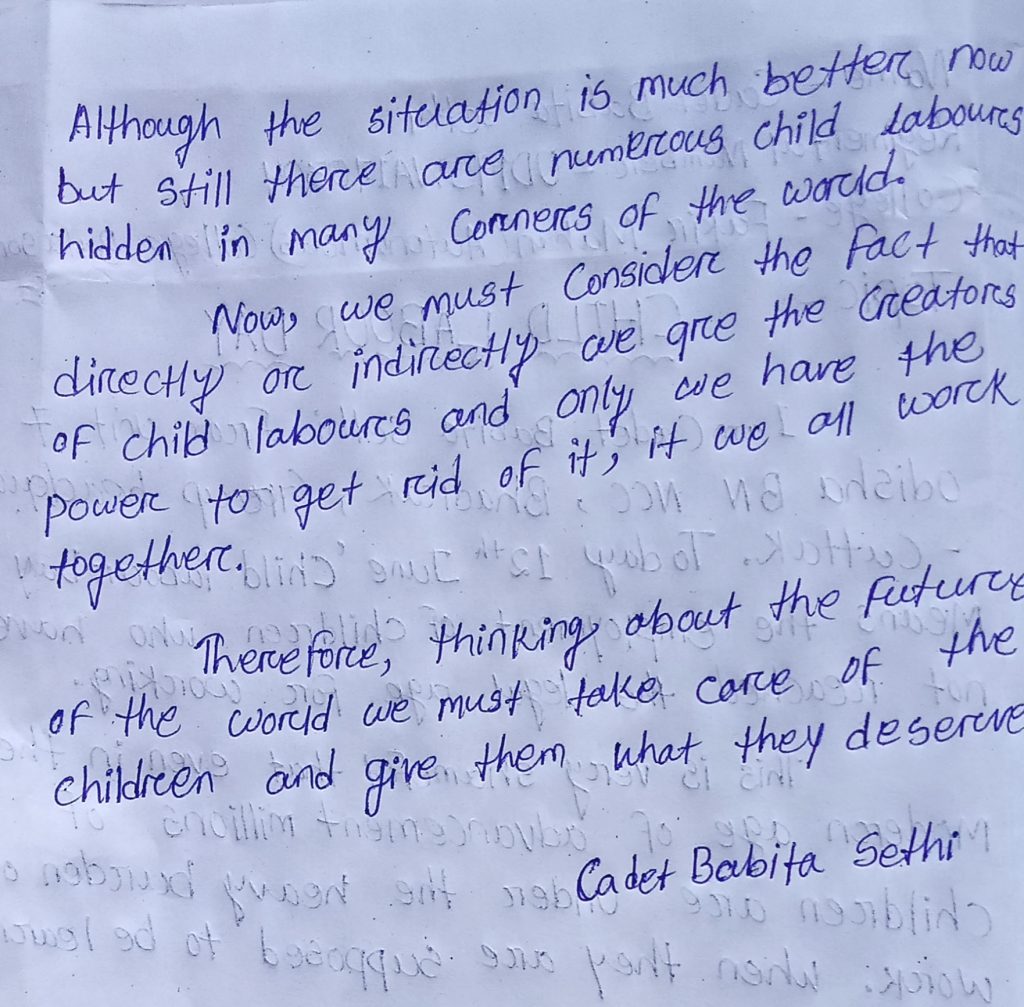 Although the situation is much better now
but still there are numerous child labours
hidden in many Corners of the world.
Now, we must Consider the fact that
directly or indirectly we are the Creators
of child labours and only we have the
power to get rid of it, if we all work
together.
Therefore, thinking about the future
of the world we must take care of the
children and give them what they deserve
Cadet Babita Sethi